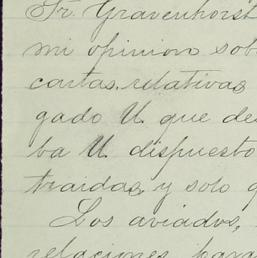 Fr. Gravenhorst
mi opinion sob
cartas, relativas
gado U. que de
ba U. dispuesto
traidas y solo q
Los aviados,
relaciones para